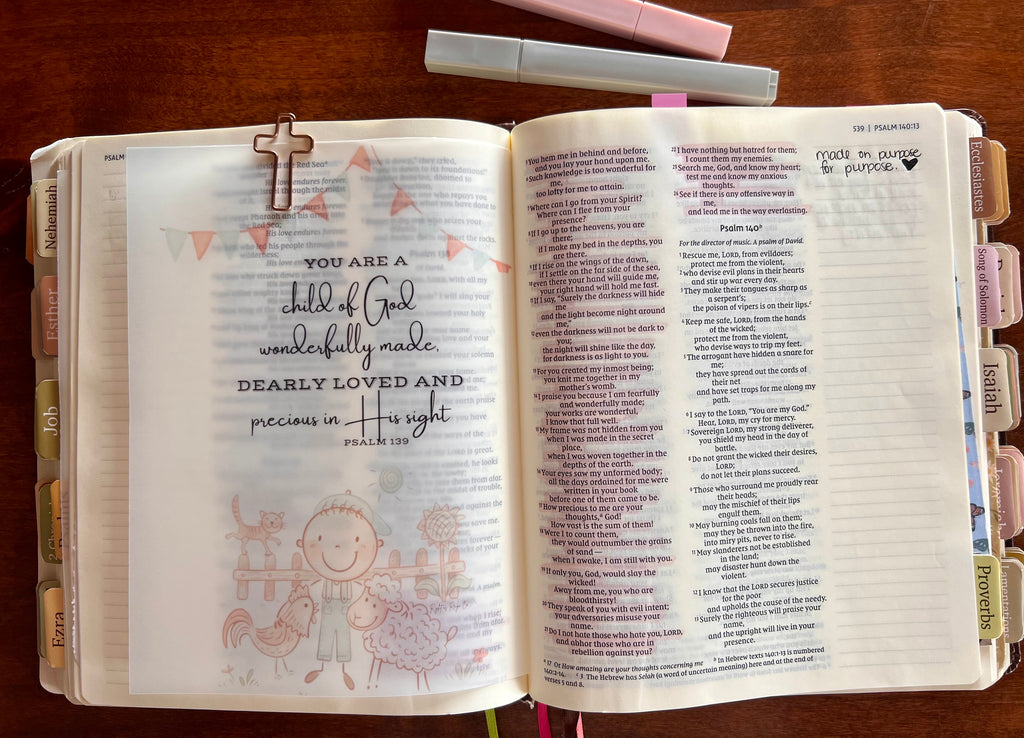 Nehemiah
Esther
Job
Ezra
PSALM
divided the Red Sea
His love endures forever.
His love endures
Pharaoh and his
Red Sea;
His love
his people through the
wilderness;
YOU ARE A
child of God
wonderfully made,
DEARLY LOVED AND
precious in His sight
PSALM 139
539 | PSALM 140:13
made on purpose
for purpose. ♥
5 You hem me in behind and before,
and you lay your hand upon me.
6 Such knowledge is too wonderful for
me,
too lofty for me to attain.
7 Where can I go from your Spirit?
Where can I flee from your
presence?
8 If I go up to the heavens, you are
there;
if I make my bed in the depths, you
are there.
9 If I rise on the wings of the dawn,
if I settle on the far side of the sea,
10 even there your hand will guide me,
your right hand will hold me fast.
11 If I say, “Surely the darkness will hide
me
and the light become night around
me,”
12 even the darkness will not be dark to
you;
the night will shine like the day,
for darkness is as light to you.
13 For you created my inmost being;
you knit me together in my
mother’s womb.
14 I praise you because I am fearfully
and wonderfully made;
your works are wonderful,
I know that full well.
15 My frame was not hidden from you
when I was made in the secret
place,
when I was woven together in the
depths of the earth.
16 Your eyes saw my unformed body;
all the days ordained for me were
written in your book
before one of them came to be.
17 How precious to me are your
thoughts,a God!
How vast is the sum of them!
18 Were I to count them,
they would outnumber the grains
of sand—
when I awake, I am still with you.
19 If only you, God, would slay the
wicked!
Away from me, you who are
bloodthirsty!
20 They speak of you with evil intent;
your adversaries misuse your
name.
21 Do I not hate those who hate you, LORD,
and abhor those who are in
rebellion against you?
22 I have nothing but hatred for them;
I count them my enemies.
23 Search me, God, and know my heart;
test me and know my anxious
thoughts.
24 See if there is any offensive way in
me,
and lead me in the way everlasting.
Psalm 140b
For the director of music. A psalm of David.
1 Rescue me, LORD, from evildoers;
protect me from the violent,
2 who devise evil plans in their hearts
and stir up war every day.
3 They make their tongues as sharp as
a serpent’s;
the poison of vipers is on their lips.c
4 Keep me safe, LORD, from the hands
of the wicked;
protect me from the violent,
who devise ways to trip my feet.
5 The arrogant have hidden a snare for
me;
they have spread out the cords of
their net
and have set traps for me along my
path.
6 I say to the LORD, “You are my God.”
Hear, LORD, my cry for mercy.
7 Sovereign LORD, my strong deliverer,
you shield my head in the day of
battle.
8 Do not grant the wicked their desires,
LORD;
do not let their plans succeed.
9 Those who surround me proudly rear
their heads;
may the mischief of their lips
engulf them.
10 May burning coals fall on them;
may they be thrown into the fire,
into miry pits, never to rise.
11 May slanderers not be established
in the land;
may disaster hunt down the
violent.
12 I know that the LORD secures justice
for the poor
and upholds the cause of the needy.
13 Surely the righteous will praise your
name,
and the upright will live in your
presence.
a 17 Or How amazing are your thoughts concerning me b In Hebrew texts 140:1-13 is numbered
140:2-14. c 3 The Hebrew has Selah (a word of uncertain meaning) here and at the end of
verses 5 and 8.
Ecclesiastes
Song of Solomon
Isaiah
Jeremiah
Proverbs
Lamentations